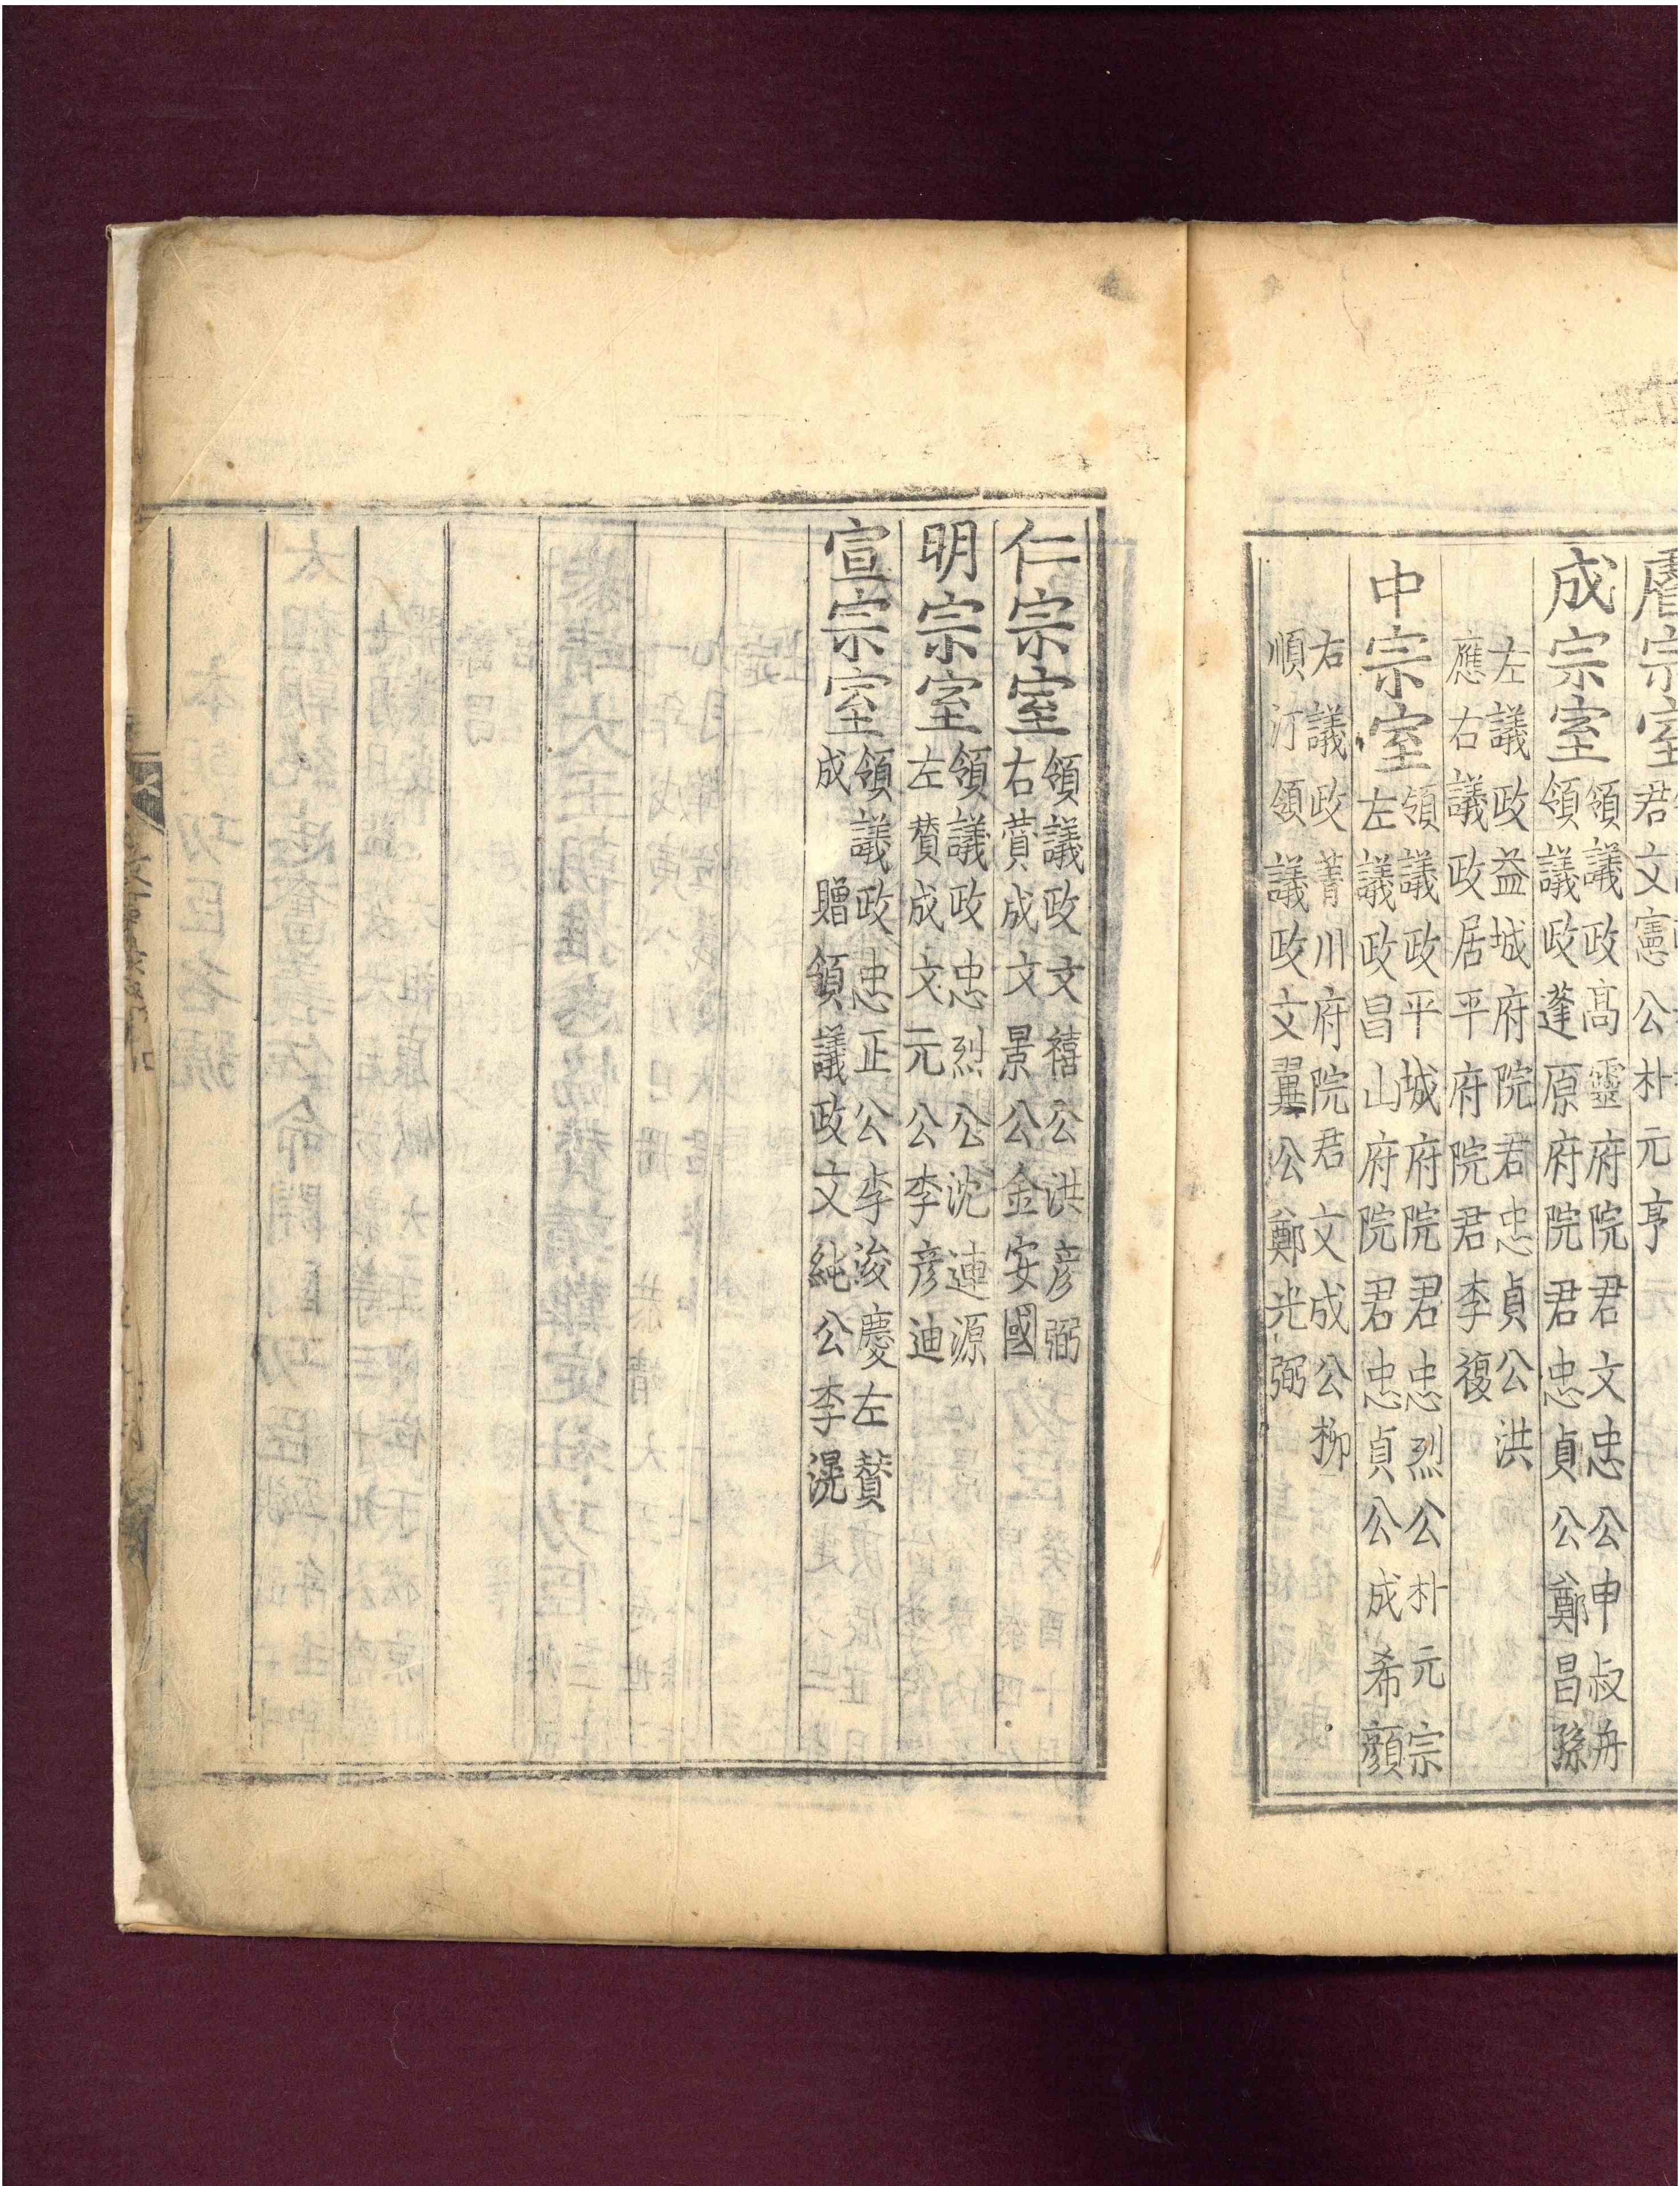 睿宗室
君文憲公朴元亨
成宗室
領議政高靈府院君文忠公申叔舟
領議政蓬原府院君忠貞公鄭昌孫
左議政益城府院君忠貞公洪
應右議政居平府院君李復
中宗室
領議政平城府院君忠烈公朴元宗
左議政昌山府院君忠貞公成希顔
右議政菁川府院君文成公柳
順汀領議政文翼公鄭光弼
仁宗室
領議政文禧公洪彦弼
右賛成文景公金安國
明宗室
領議政忠烈公沈連源
左賛成文元公李彦迪
宣宗室
領議政忠正公李浚慶左賛
成 贈領議政文純公李滉